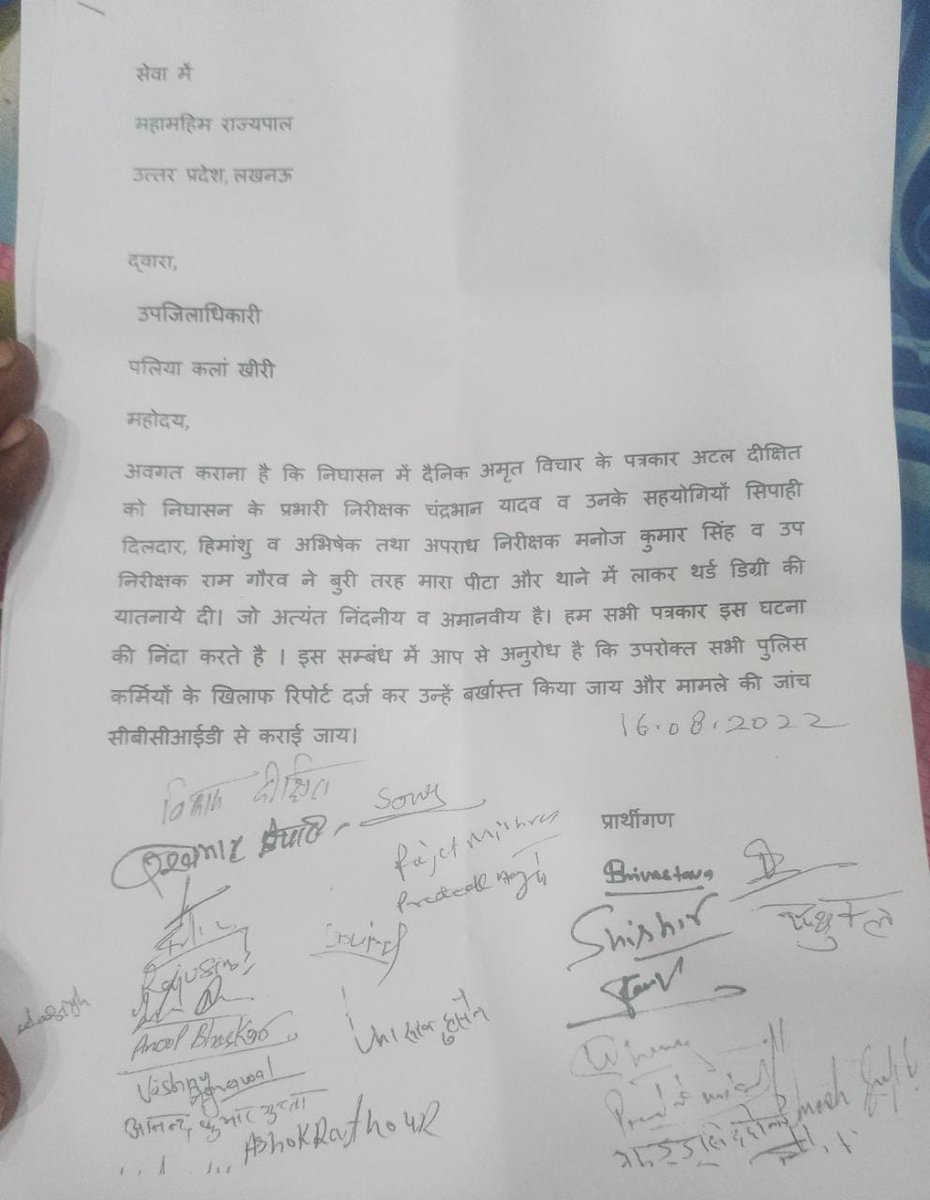 सेवा में
महामहिम राज्यपाल
उत्तर प्रदेश, लखनऊ
द्वारा,
उपजिलाधिकारी
पलिया कलां खीरी
महोदय,
अवगत कराना है कि निघासन में दैनिक अमृत विचार के पत्रकार अटल दीक्षित
को निघासन के प्रभारी निरीक्षक चंद्रभान यादव व उनके सहयोगियों सिपाही
दिलदार, हिमांशु व अभिषेक तथा अपराध निरीक्षक मनोज कुमार सिंह व उप
निरीक्षक राम गौरव ने बुरी तरह मारा पीटा और थाने में लाकर थर्ड डिग्री की
यातनाये दी। जो अत्यंत निंदनीय व अमानवीय है। हम सभी पत्रकार इस घटना
की निंदा करते है । इस सम्बंध में आप से अनुरोध है कि उपरोक्त सभी पुलिस
कर्मियों के खिलाफ रिपोर्ट दर्ज कर उन्हें बर्खास्त किया जाय और मामले की जांच
सीबीसीआईडी से कराई जाय।
16.08.2022
दीक्षित
प्रार्थीगण
Mishra
Srivastava
Shishir
Anoop Bhaskar
हुसैन
Vishnu
Agrawal
आनन्द कुमार गुप्ता
Ashok Rathour